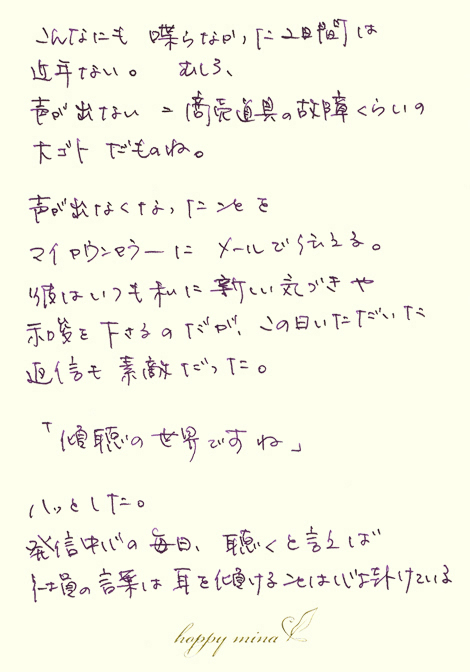 こんなにも 喋らなかった2日間は
近年ない。 むしろ、
声が出ない = 商売道具の故障くらいの
大ゴトだものね。
声が出なくなったことを
マイカウンセラーに メールで伝える。
彼はいつも私に新しい気づきや
示唆を下さるのだが、この日いただいた
返信も素敵だった。
「傾聴の世界ですね」
ハッとした。
発信中心の毎日、聴くと言えば
社員の言葉は耳を傾けることは心がけている
happy mina